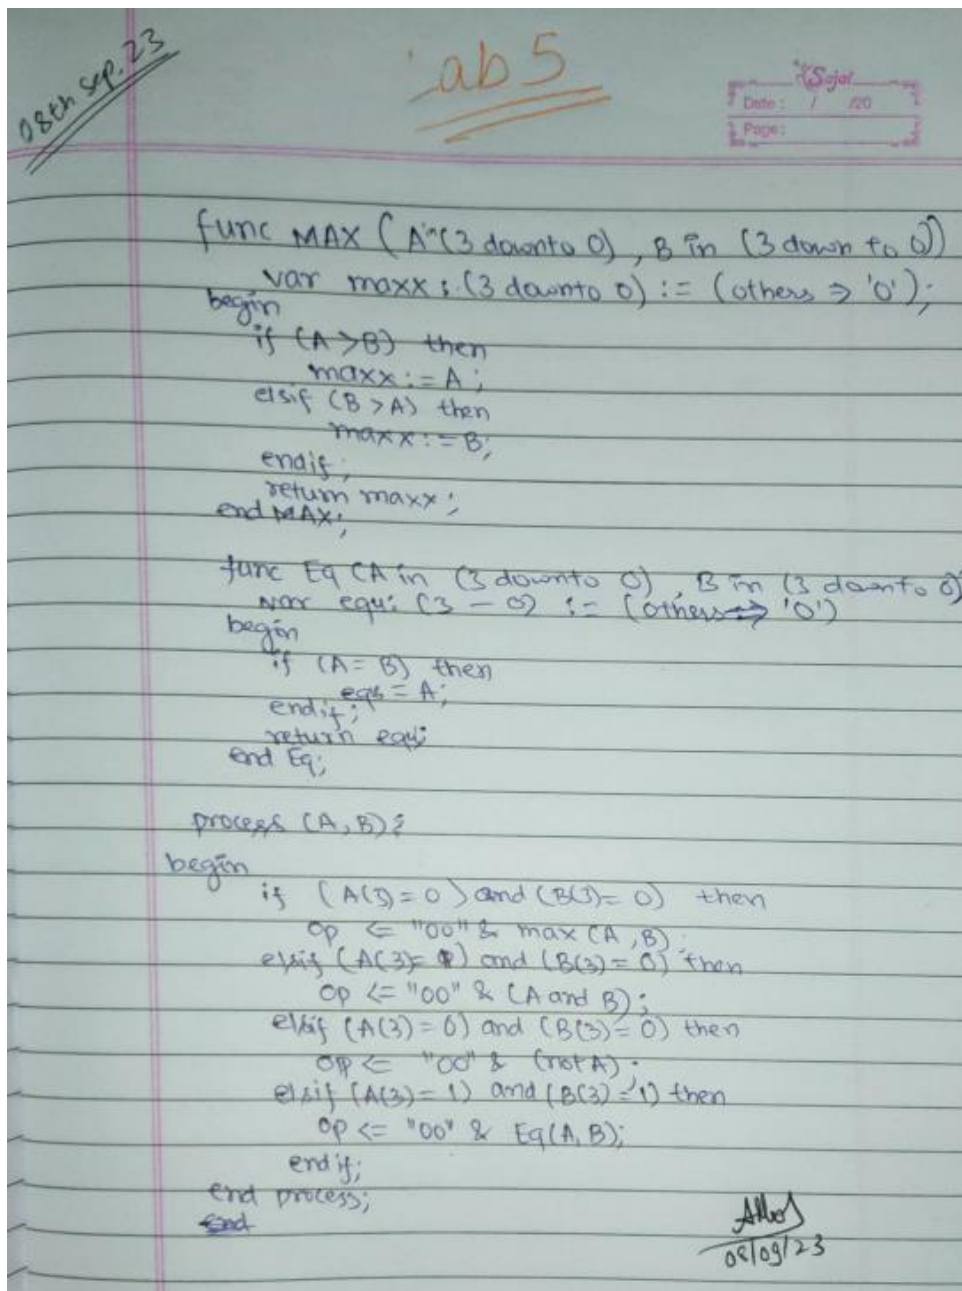 08th Sep. 23
Lab 5
Sojal
Date : / /20
Page:
func MAX ( A in (3 downto 0) , B in (3 down to 0))
var maxx : (3 downto 0) := (others => '0');
begin
if (A>B) then
maxx := A ;
elsif (B>A) then
maxx := B;
endif;
return maxx ;
end MAX;
func Eq (A in (3 downto 0) , B in (3 downto 0)
var equ: (3 - 0) := (others => '0')
begin
if (A = B) then
equ = A;
endif;
return equ;
end Eq;
process (A, B);
begin
if (A(3) = 0 ) and (B(3) = 0) then
op <= "00" & max (A , B) ;
elsif (A(3) = 1) and (B(3) = 0) then
op <= "00" & (A and B);
elsif (A(3) = 0) and (B(3) = 0) then
op <= "00" & (not A) ;
elsif (A(3) = 1) and (B(3) = '1) then
op <= "00" & Eq(A, B);
endif;
end process;
end
08/09/23